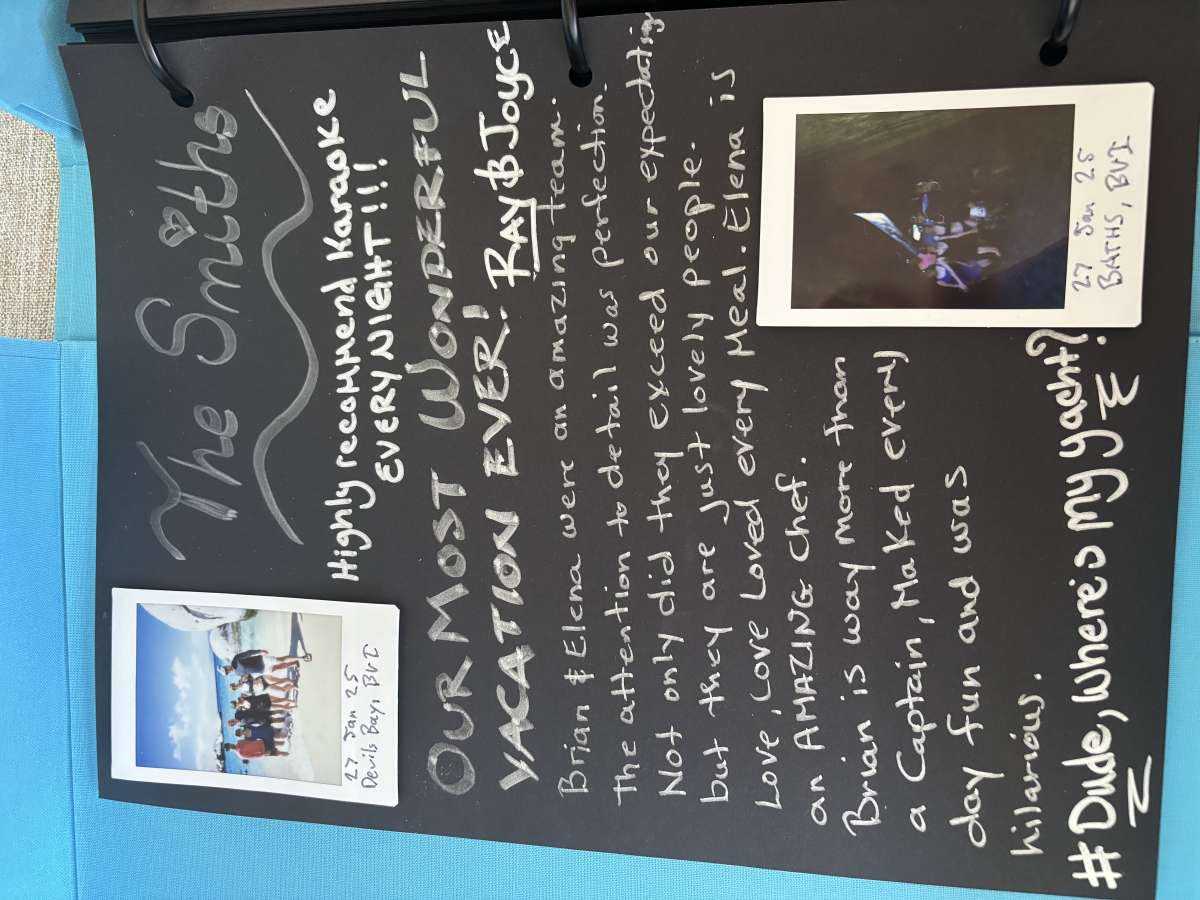 The Smiths
Highly recommend Karaoke
EVERY NIGHT!!!
27 Jan 25
Devils Bay, BVI
OUR MOST WONDERFUL
VACATION EVER! RAY & JOYCE
Brian & Elena were an amazing team.
The attention to detail was perfection.
Not only did they exceed our expectations
but they are just lovely people.
Love, Love Loved every meal. Elena is
an AMAZING chef.
Brian is way more than
a Captain, Maked every
day fun and was
hilarious.
27 Jan 25
BATHS, BVI
#Dude, where's my yacht?